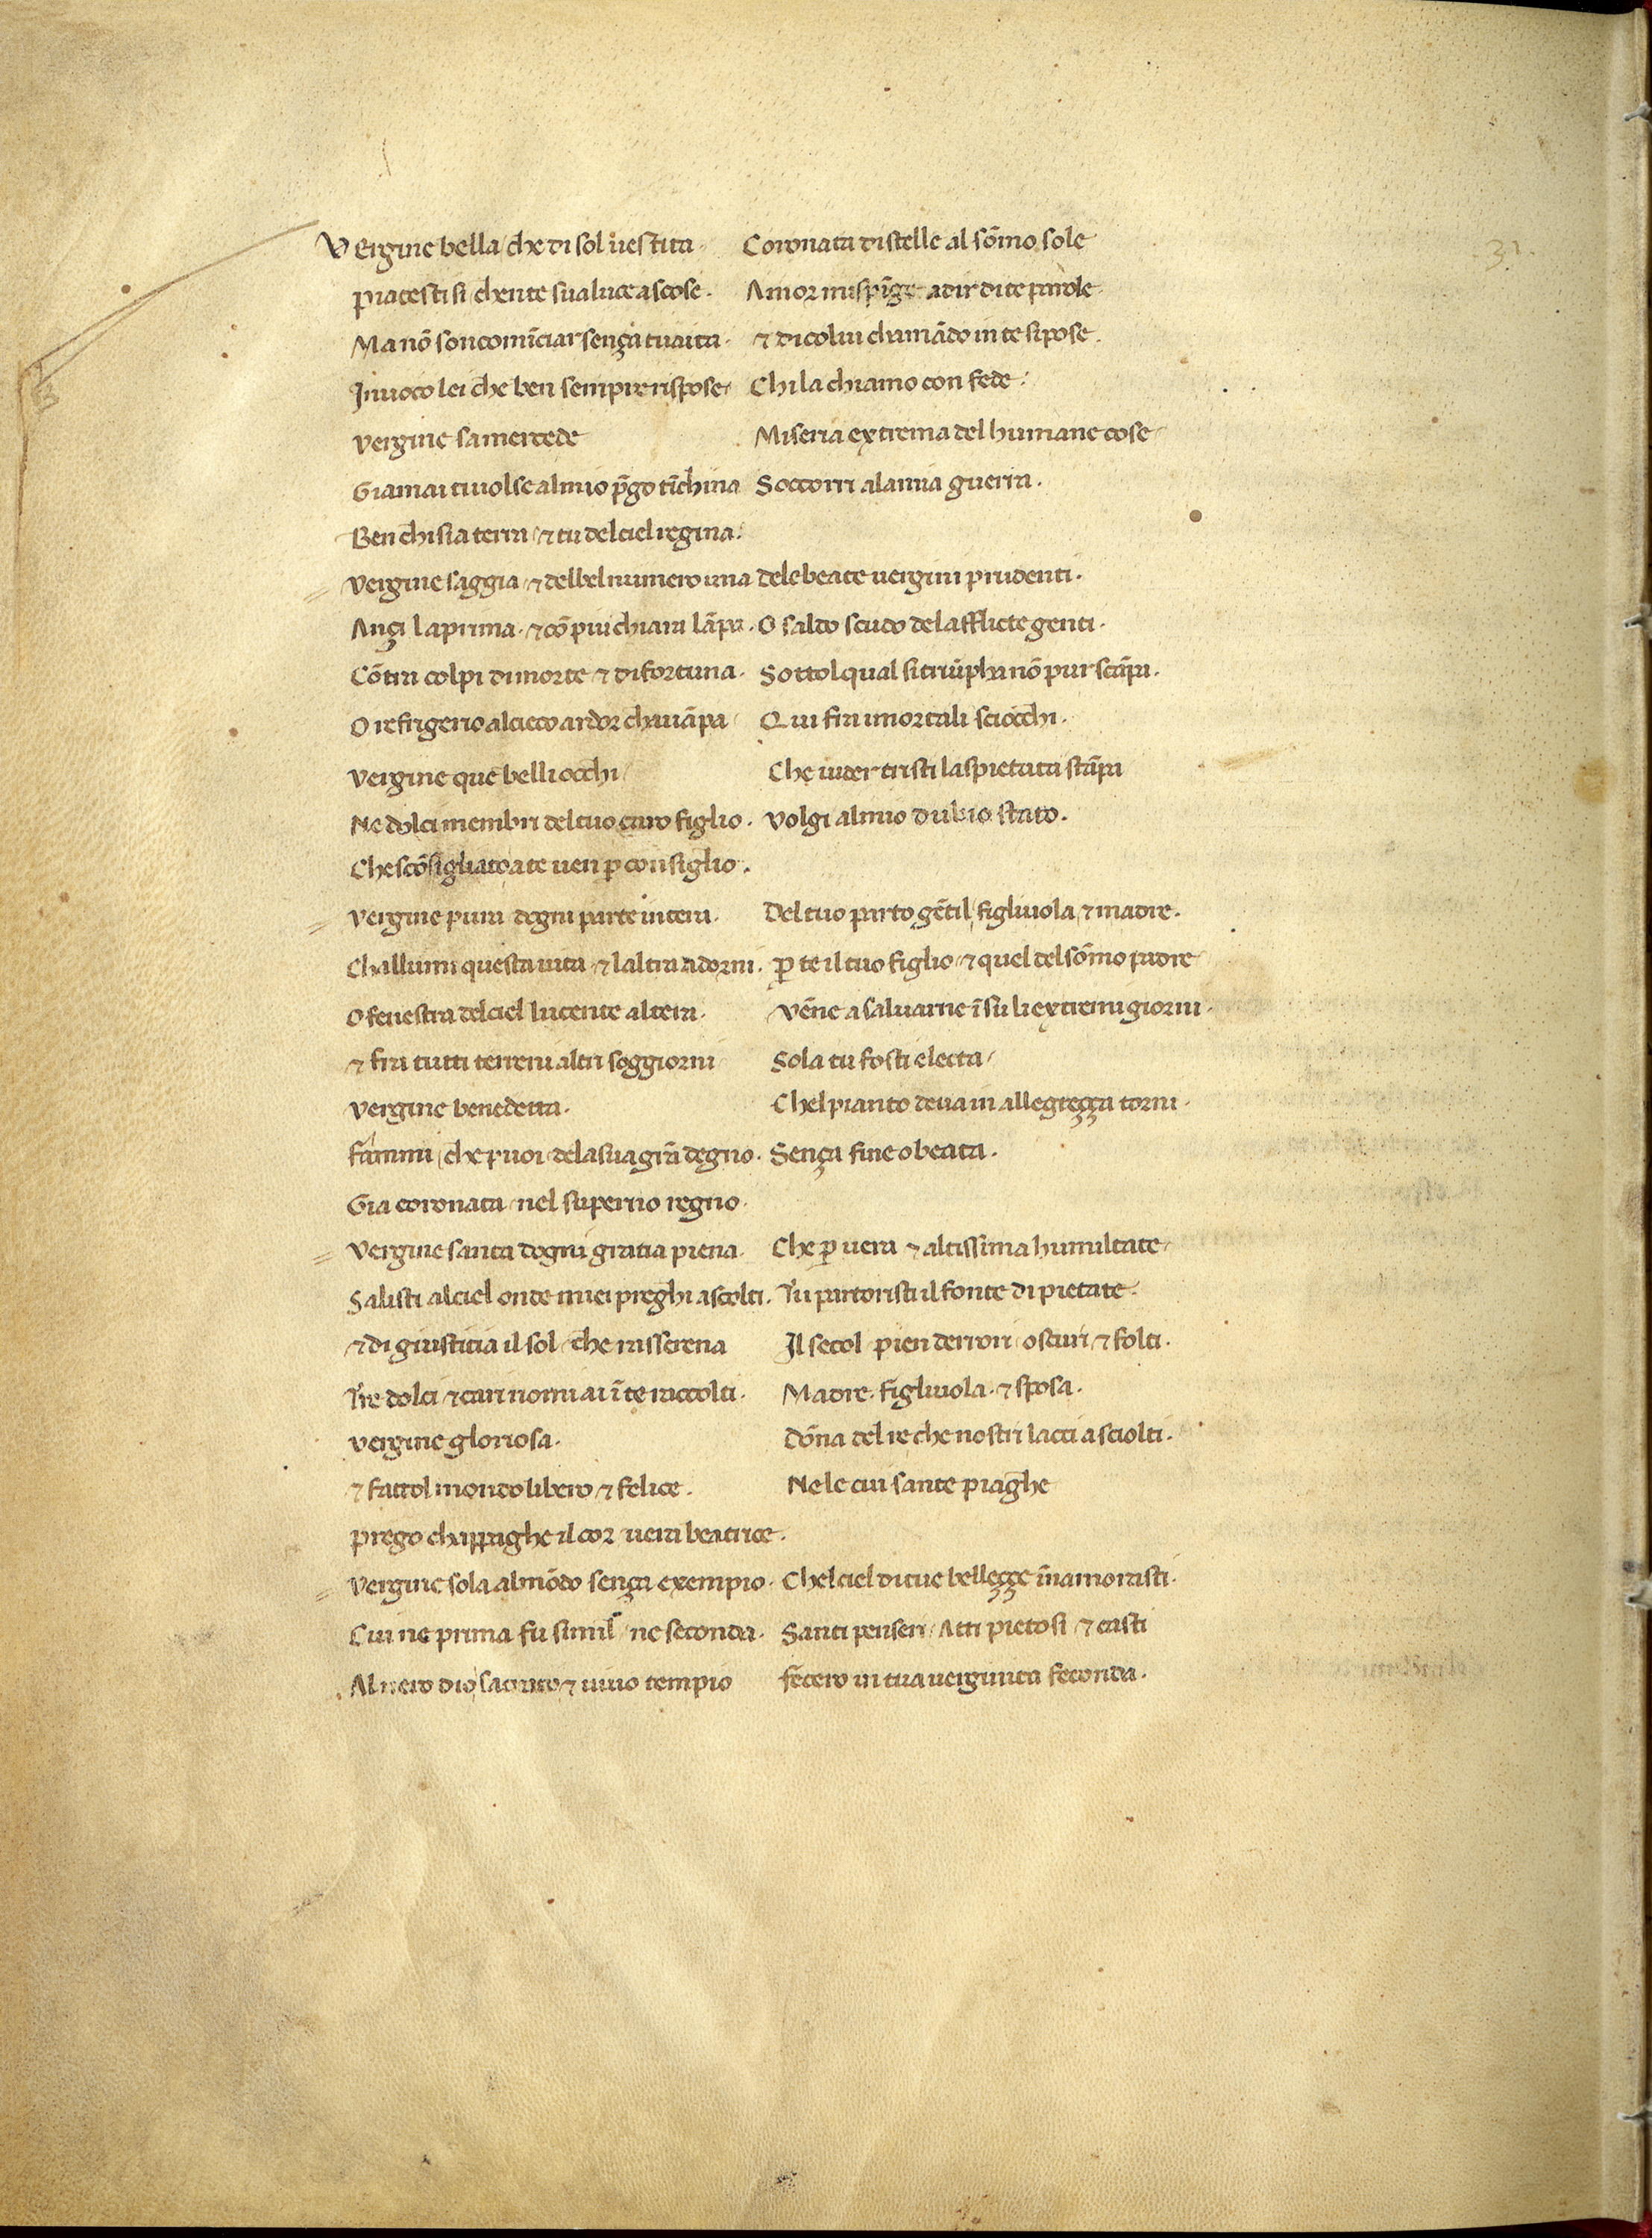 Vergine bella che di sol uestita · Coronata di stelle al sōmo sole
piacesti si chente sua luce ascose · Amor mi spīge a dir di te parole
Ma nō so ncomīciar sença tua ita · & di colui chamādo in te si pose ·
Inuoco lei che ben sempre rispose Chi la chiamo con fede ·
Vergine sa mercede Miseria extrema del humane cose
Giamai ti uolse al mio p̄go tīchina Soccorri a la mia guerra ·
Ben chi sia terra & tu del ciel regina ·
Vergine saggia & del bel numero una dele beate uergini prudenti ·
Ançi la prima · & cō piu chiara lāpa · O saldo scudo del afflicte genti ·
Cōtra colpi di morte & di fortuna · Sottol qual si triūpha nō pur scāpa ·
O refrigerio al cieco ardor chauāpa Qui fra i mortali sciocchi ·
Vergine que belli occhi Che uider tristi la spietata stāpa
Ne dolci membri del tuo caro figlio · Volgi al mio dubio stato ·
Che scōsigliato a te uen ꝑ consiglio ·
Vergine pura dogni parte intera · Del tuo parto gētil figliuola & madre ·
Challumi questa uita & laltra adorni · ꝑ te il tuo figlio & quel del sōmo padre
O fenestra del ciel lucente altera · Vēne a saluarne ī su li extremi giorni ·
& fra tutti terreni altri soggiorni Sola tu fosti electa
Vergine benedetta · Chel pianto deua in allegreçça torni ·
fammi che puoi dela sua grā degno · Sença fine o beata ·
Gia coronata nel superno regno ·
Vergine santa dogni gratia piena · Che ꝑ uera & altissima humiltate
Salisti al ciel onde miei preghi ascolti · Tu partoristi il fonte di pietate ·
& di giusticia il sol che rasserena Il secol pien derrori oscuri & folti ·
Tre dolci & cari nomi ai ī te raccolti · Madre · figliuola · & sposa ·
Vergine gloriosa · Dōna del re che nostri lacci a sciolti ·
& fattol mondo libero & felice · Nele cui sante piaghe
prego chappaghe il cor uera beatrice ·
Vergine sola al mōdo sença exempio · Chel ciel di tue belleççe īnamorasti ·
Cui ne prima fu simil ne seconda · Santi penseri Atti pietosi & casti
Al uero dio sacrato & uiuo tempio fecero in tua uerginita feconda ·